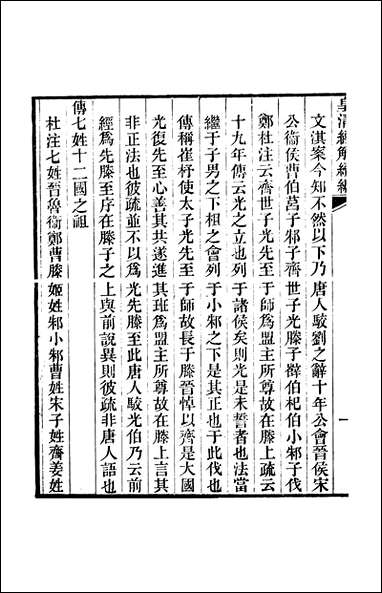 皇清經解續編
一
文淇案今知不然以下乃唐人駮劉之辭十年公會晉侯宋
公衞侯曹伯莒子邾子齊世子光滕子薛伯杞伯小邾子伐
鄭杜注云齊世子光先至于師爲盟主所尊故在滕上疏云
十九年傳云光之立也列于諸侯矣則光是未誓者也法當
繼于子男之下相之會列于小邾之下是其正也于此伐也
傳稱崔杼使太子光先至于師故長于滕晉悼以齊是大國
光復先至心善其共遂進其班爲盟主所尊故在滕上言其
非正法也彼疏並不以爲光先滕至此唐人駮光伯乃云前
經爲先滕至序在滕子之上與前說異則彼疏非唐人語也
傳七姓十二國之祖
杜注七姓晉魯衞鄭曹滕姬姓邾小邾曹姓宋子姓齊姜姓